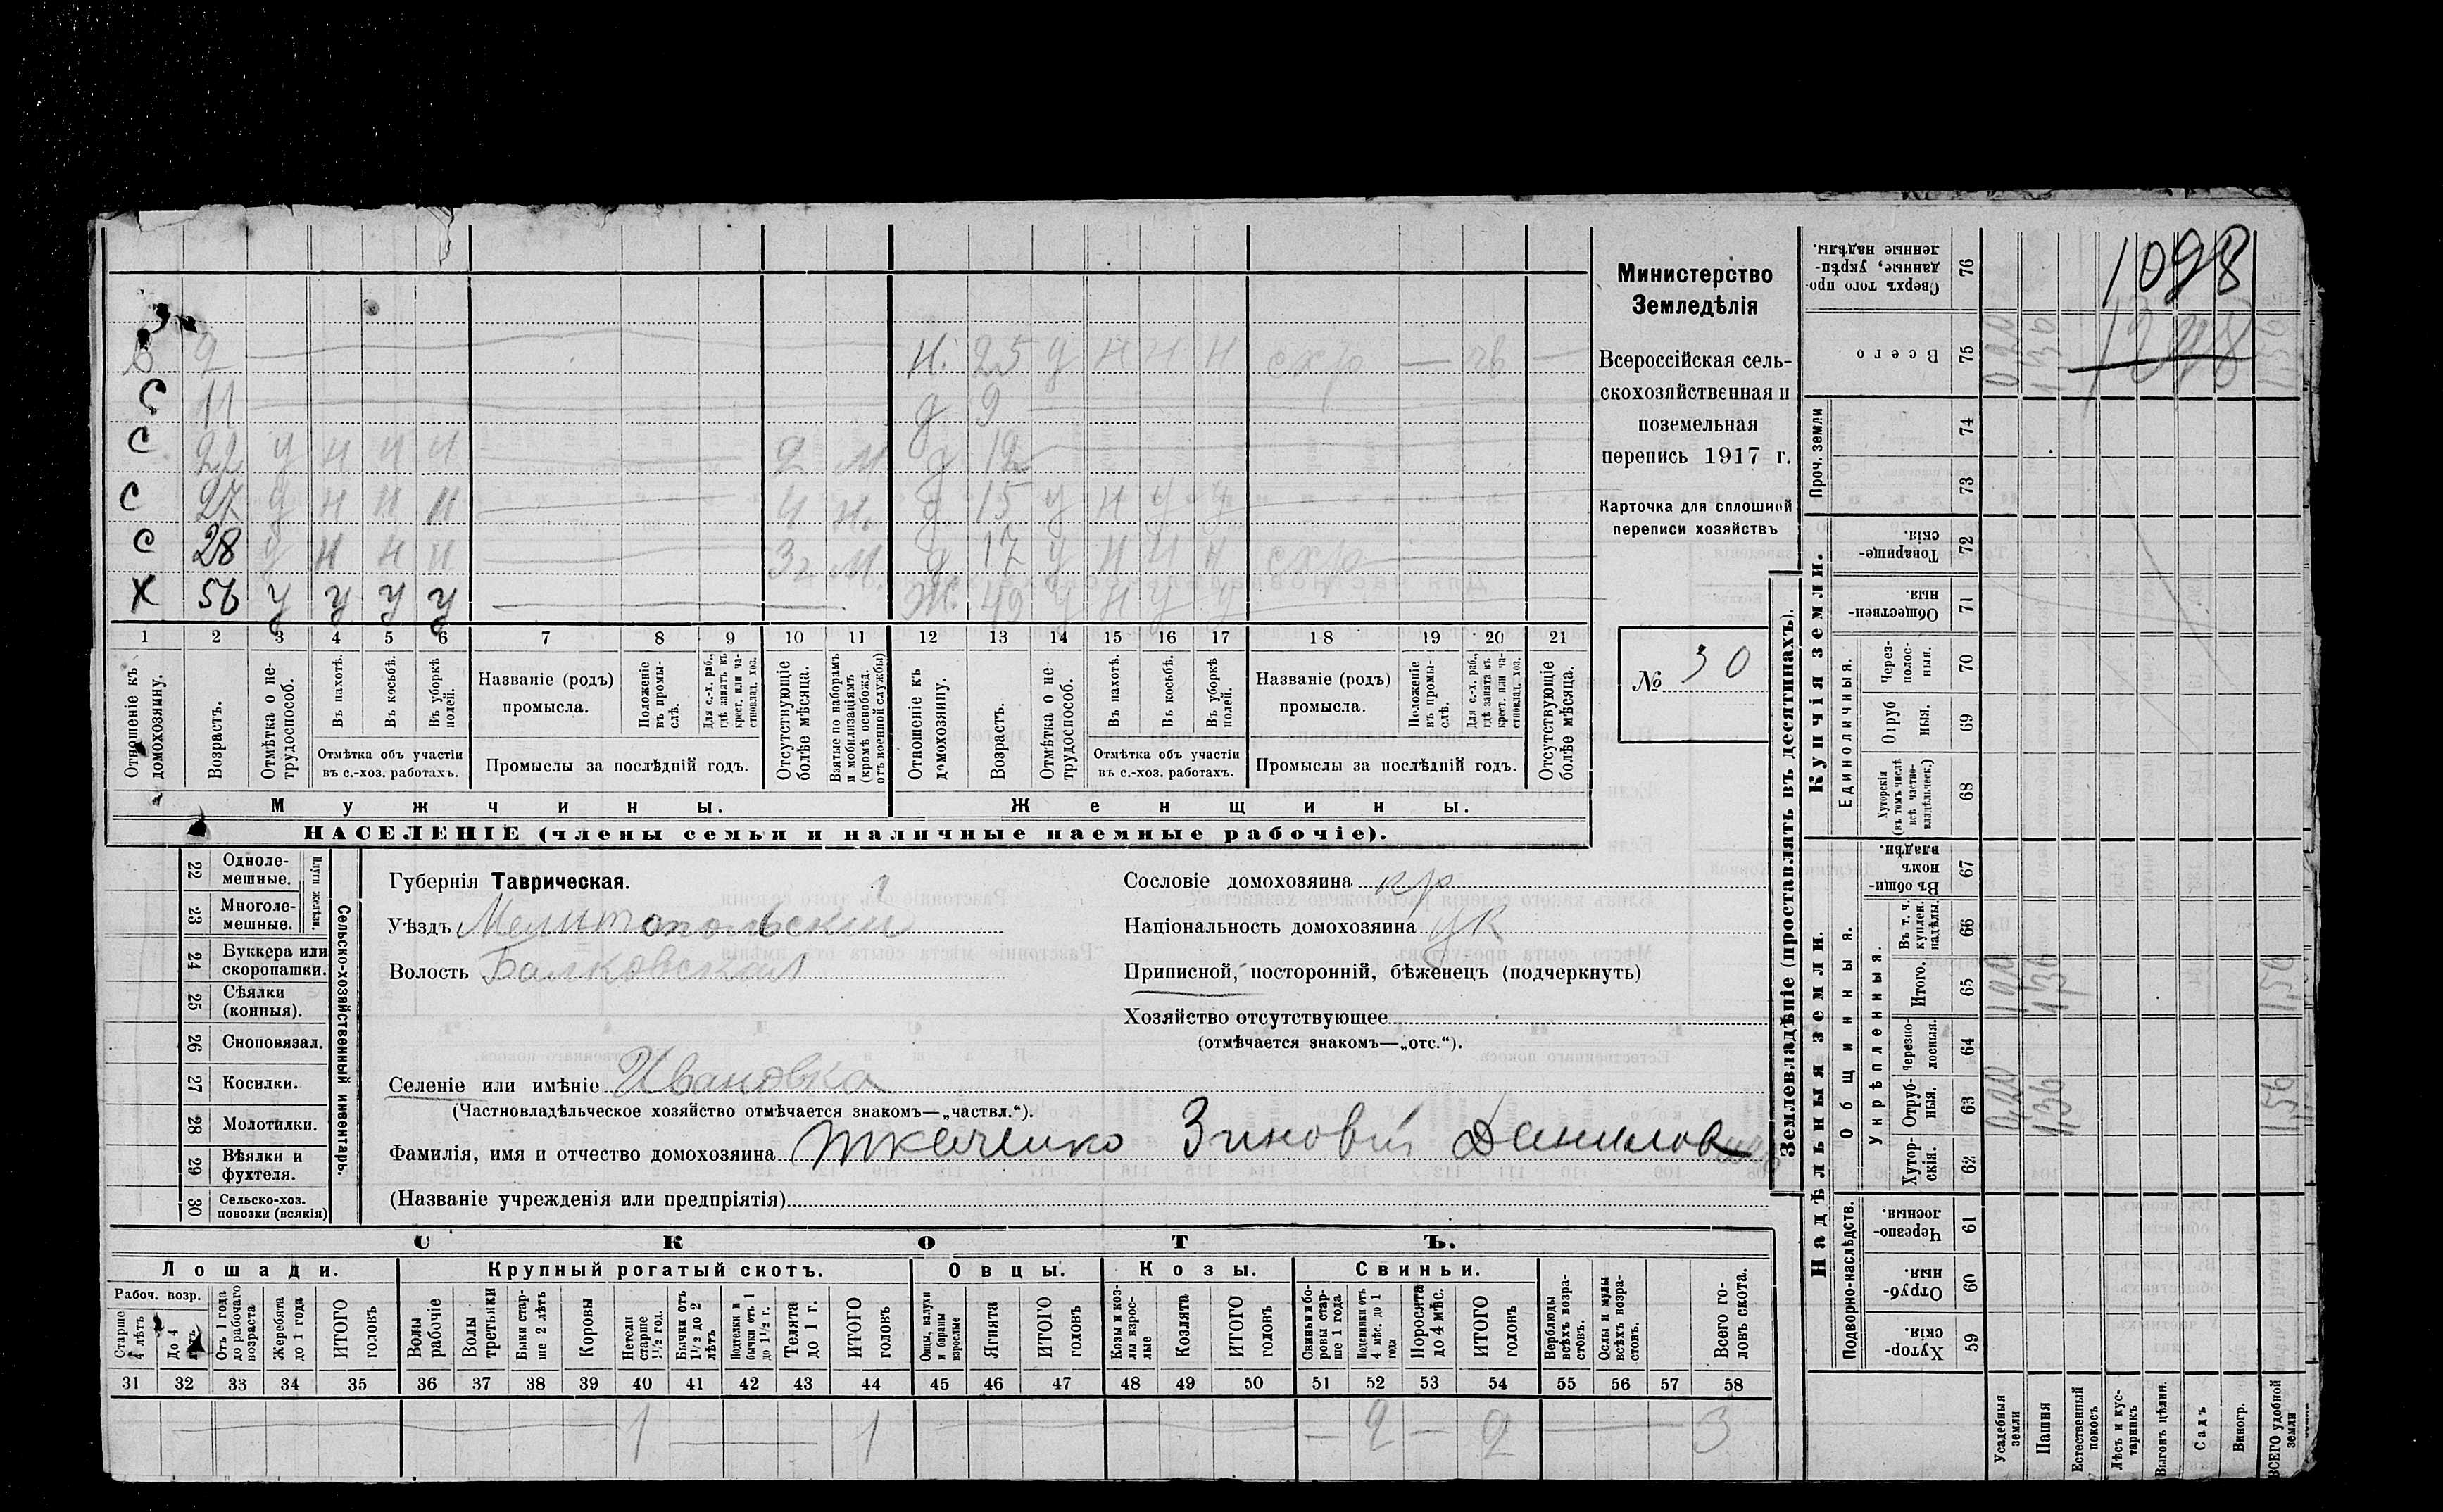 Министерство
Земледѣлія
Всероссійская сель-
скохозяйственная и
поземельная
перепись 1917 г.
Карточка для сплошной
переписи хозяйствъ
№ 30
1098
1278
б 9 Н. 25 у н н н схр — чв —
С 11 д 9
С 22 у н н н 2 м д 12
С 27 у н н н 4 н. д 15 у н у у
С 28 у н н н 32 м. д 17 у н н н схр
Х 56 у у у у Ж. 49 у н у у
1 2 3 4 5 6 7 8 9 10 11 12 13 14 15 16 17 18 19 20 21
Отношеніе къ домохозяину.
Возрастъ.
Отмѣтка о не-трудоспособ.
Въ пахотѣ.
Въ косьбѣ.
Въ уборкѣ полей.
Отмѣтка объ участіи
въ с.-хоз. работахъ.
Названіе (родъ)
промысла.
Положеніе въ промы-слѣ.
Для с.-х. раб., гдѣ занятъ въ крест. или ча-стновлад. хоз.
Промыслы за послѣдній годъ.
Отсутствующіе болѣе мѣсяца.
Взятые по наборамъ и мобилизаціямъ (кромѣ освобожд. отъ военной службы)
Отношеніе къ домохозяину.
Возрастъ.
Отмѣтка о не-трудоспособ.
Въ пахотѣ.
Въ косьбѣ.
Въ уборкѣ полей.
Отмѣтка объ участіи
въ с.-хоз. работахъ.
Названіе (родъ)
промысла.
Положеніе въ промы-слѣ.
Для с.-х. раб., гдѣ занята въ крест. или ча-стновлад. хоз.
Промыслы за послѣдній годъ.
Отсутствующіе болѣе мѣсяца.
Мужчины. Женщины.
НАСЕЛЕНІЕ (члены семьи и наличные наемные рабочіе).
Сельско-хозяйственный инвентарь.
Плуги желѣзн.
22 Одноле-мешные.
23 Многоле-мешные.
24 Буккера или скоропашки.
25 Сѣялки (конныя).
26 Сноповязал.
27 Косилки.
28 Молотилки.
29 Вѣялки и фухтеля.
30 Сельско-хоз. повозки (всякія)
Губернія Таврическая. 1
Уѣздъ Мелитопольскій
Волость Балковская
Сословіе домохозяина кр
Національность домохозяина ук
Приписной, посторонній, бѣженецъ (подчеркнуть)
Хозяйство отсутствующее
(отмѣчается знакомъ—„отс.“).
Селеніе или имѣніе Ивановка
(Частновладѣльческое хозяйство отмѣчается знакомъ—„частвл.“).
Фамилія, имя и отчество домохозяина Ткаченко Зиновій Данилов
(Названіе учрежденія или предпріятія)
СКОТЪ.
Лошади. Крупный рогатый скотъ. Овцы. Козы. Свиньи.
Рабоч. возр.
Старше 4 лѣтъ
До 4 лѣтъ
Отъ 1 года до рабочаго возраста
Жеребята до 1 года
ИТОГО головъ
Волы рабочіе
Волы третьяки
Быки стар-ше 2 лѣтъ
Коровы
Нетели старше 1½ год.
Бычки отъ 1½ до 2 лѣтъ
Нетелки и бычки отъ 1 до 1½ г.
Телята до 1 г.
ИТОГО головъ
Овцы, валухи и бараны взрослые
Ягнята
ИТОГО головъ
Козы и коз-лы взрос-лые
Козлята
ИТОГО головъ
Свиньи и бо-ровы стар-ше 1 года
Подсвинки отъ 4 мѣс. до 1 года
Поросята до 4 мѣс.
ИТОГО головъ
Верблюды всѣхъ возра-стовъ.
Ослы и мулы всѣхъ возра-стовъ.
Всего го-ловъ скота.
31 32 33 34 35 36 37 38 39 40 41 42 43 44 45 46 47 48 49 50 51 52 53 54 55 56 57 58
1 — 1 — 2 — 2 — 3
Землевладѣніе (проставлять въ десятинахъ).
Надѣльныя земли. Купчія земли. Проч. земли
Подворно-наслѣдств.
Общинныя.
Укрѣпленныя.
Единоличныя.
59 Хутор-скія.
60 Отруб-ныя.
61 Черезпо-лосныя.
62 Хутор-скія.
63 Отруб-ныя. 1,36 1,56
64 Черезпо-лосныя.
65 Итого. 1,36 1,56
66 Въ т. ч. куплен. надѣлы.
67 Въ общин-номъ владѣн.
68 Хуторскія (въ томъ числѣ всѣ частно-владѣльческ.)
69 Отруб ныя.
70 Через-полос-ныя.
71 Обществен-ныя.
72 Товарище-скія.
73
74
75 Всего 0,20 1,36 1,56
76 Сверхъ того про-данные, укрѣп-ленные надѣлы.
Усадебныя земли
Пашня
Естественный покосъ
Лѣсъ и кус-тарникъ
Выгонъ цѣлин.
Садъ
Виногр.
ВСЕГО удобной земли